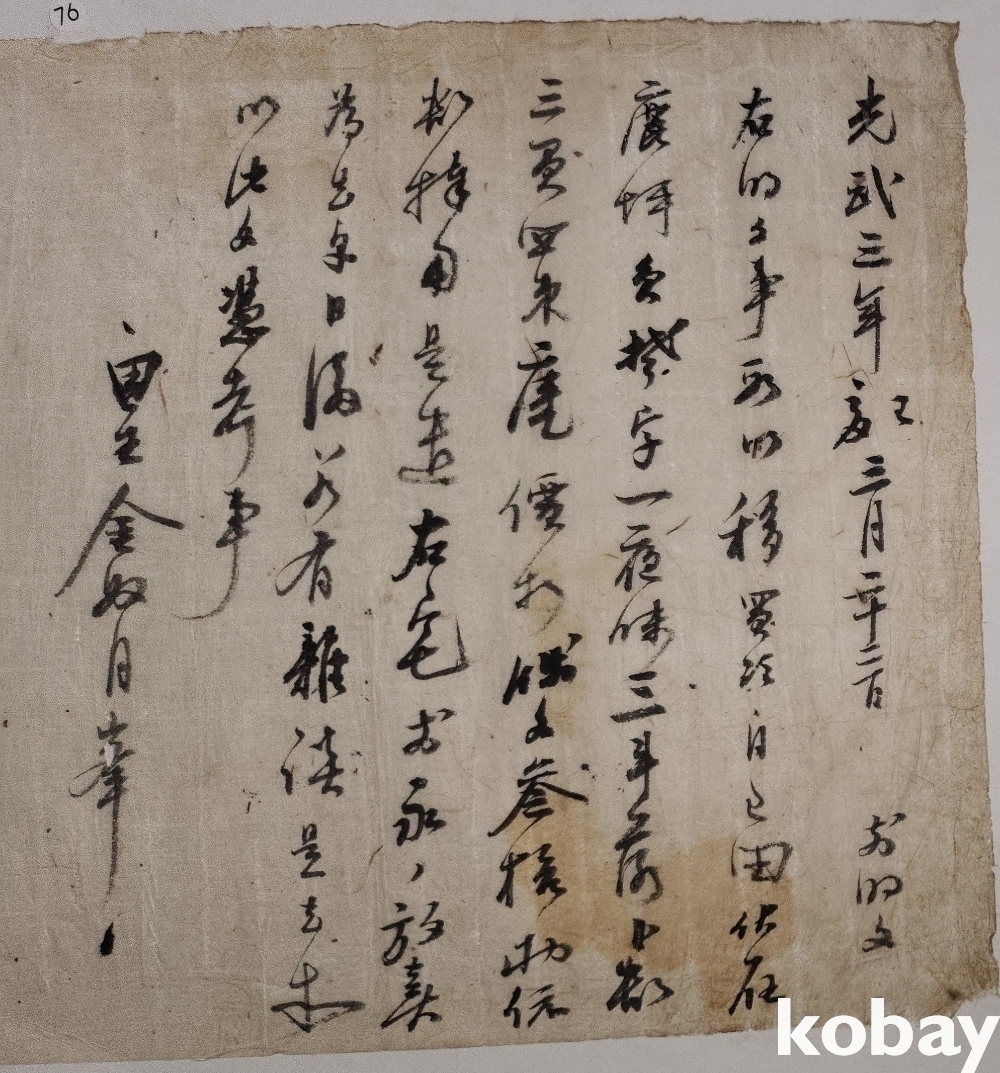 76
光武三年亥己三月二十二日 前明文
右明文事段以移買次自己田伏在
坪員字一夜味三斗落卜數
三負四束庫價折錢文參拾兩依
數捧用是遣右宅前永永放賣
為去乎日後若有雜談是去等
以此文憑考事
田主金奴月奉
kobay